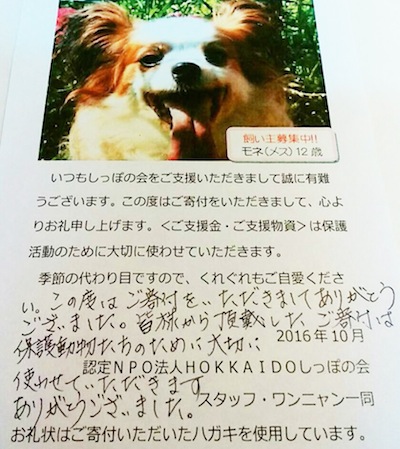 飼い主募集中!!
モネ(メス)12歳
いつもしっぽの会をご支援いただきまして誠に有難
うございます。この度はご寄付をいただきまして、心よ
りお礼申し上げます。<ご支援金・ご支援物資>は保護
活動のために大切に使わせていただきます。
季節の代わり目ですので、くれぐれもご自愛くださ
い。
この度はご寄付をいただきましてありがとう
ございました。皆様から頂戴したご寄付は
保護動物たちのために大切に
2016年10月
認定NPO法人HOKKAIDOしっぽの会
使わせていただきます
ありがとうございました。
スタッフ・ワンニャン一同
お礼状はご寄付いただいたハガキを使用しています。